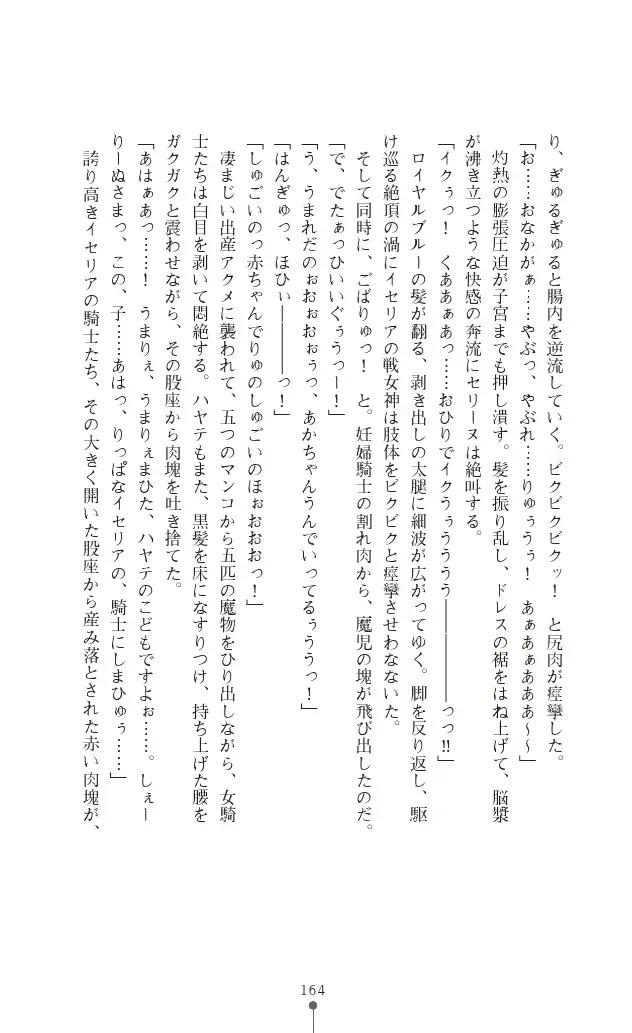 り、ぎゅるぎゅると腸内を逆流していく。ビクビクビクッ！　と尻肉が痙攣した。
「お……おなかがぁ……やぶっ、やぶれ……りゅぅうぅ！　あぁあぁあああ～～」
　灼熱の膨張圧迫が子宮までも押し潰す。髪を振り乱し、ドレスの裾をはね上げて、脳漿
が沸き立つような快感の奔流にセリーヌは絶叫する。
「イクぅっ！　くああぁあっ……おひりでイクうぅうううう――――――っっ!!」
　ロイヤルブルーの髪が翻る、剥き出しの太腿に細波が広がってゆく。脚を反り返し、駆
け巡る絶頂の渦にイセリアの戦女神は肢体をビクビクと痙攣させわなないた。
　そして同時に、ごばりゅっ！　と。妊婦騎士の割れ肉から、魔児の塊が飛び出したのだ。
「で、でたぁっひいいぐぅうっー！」
「う、うまれだのぉおぉおぉぅっ、あかちゃんうんでいってるぅううっ！」
「はんぎゅっ、ほひぃ――――っ！」
「しゅごいのっ赤ちゃんでりゅのしゅごいのほぉおおおっ！」
　凄まじい出産アクメに襲われて、五つのマンコから五匹の魔物をひり出しながら、女騎
士たちは白目を剥いて悶絶する。ハヤテもまた、黒髪を床になすりつけ、持ち上げた腰を
ガクガクと震わせながら、その股座から肉塊を吐き捨てた。
「あはぁあっ……！　うまりぇ、うまりぇまひた、ハヤテのこどもですよぉ……。しぇー
りーぬさまっ、この、子……あはっ、りっぱなイセリアの、騎士にしまひゅぅ……」
　誇り高きイセリアの騎士たち、その大きく開いた股座から産み落とされた赤い肉塊が、
164